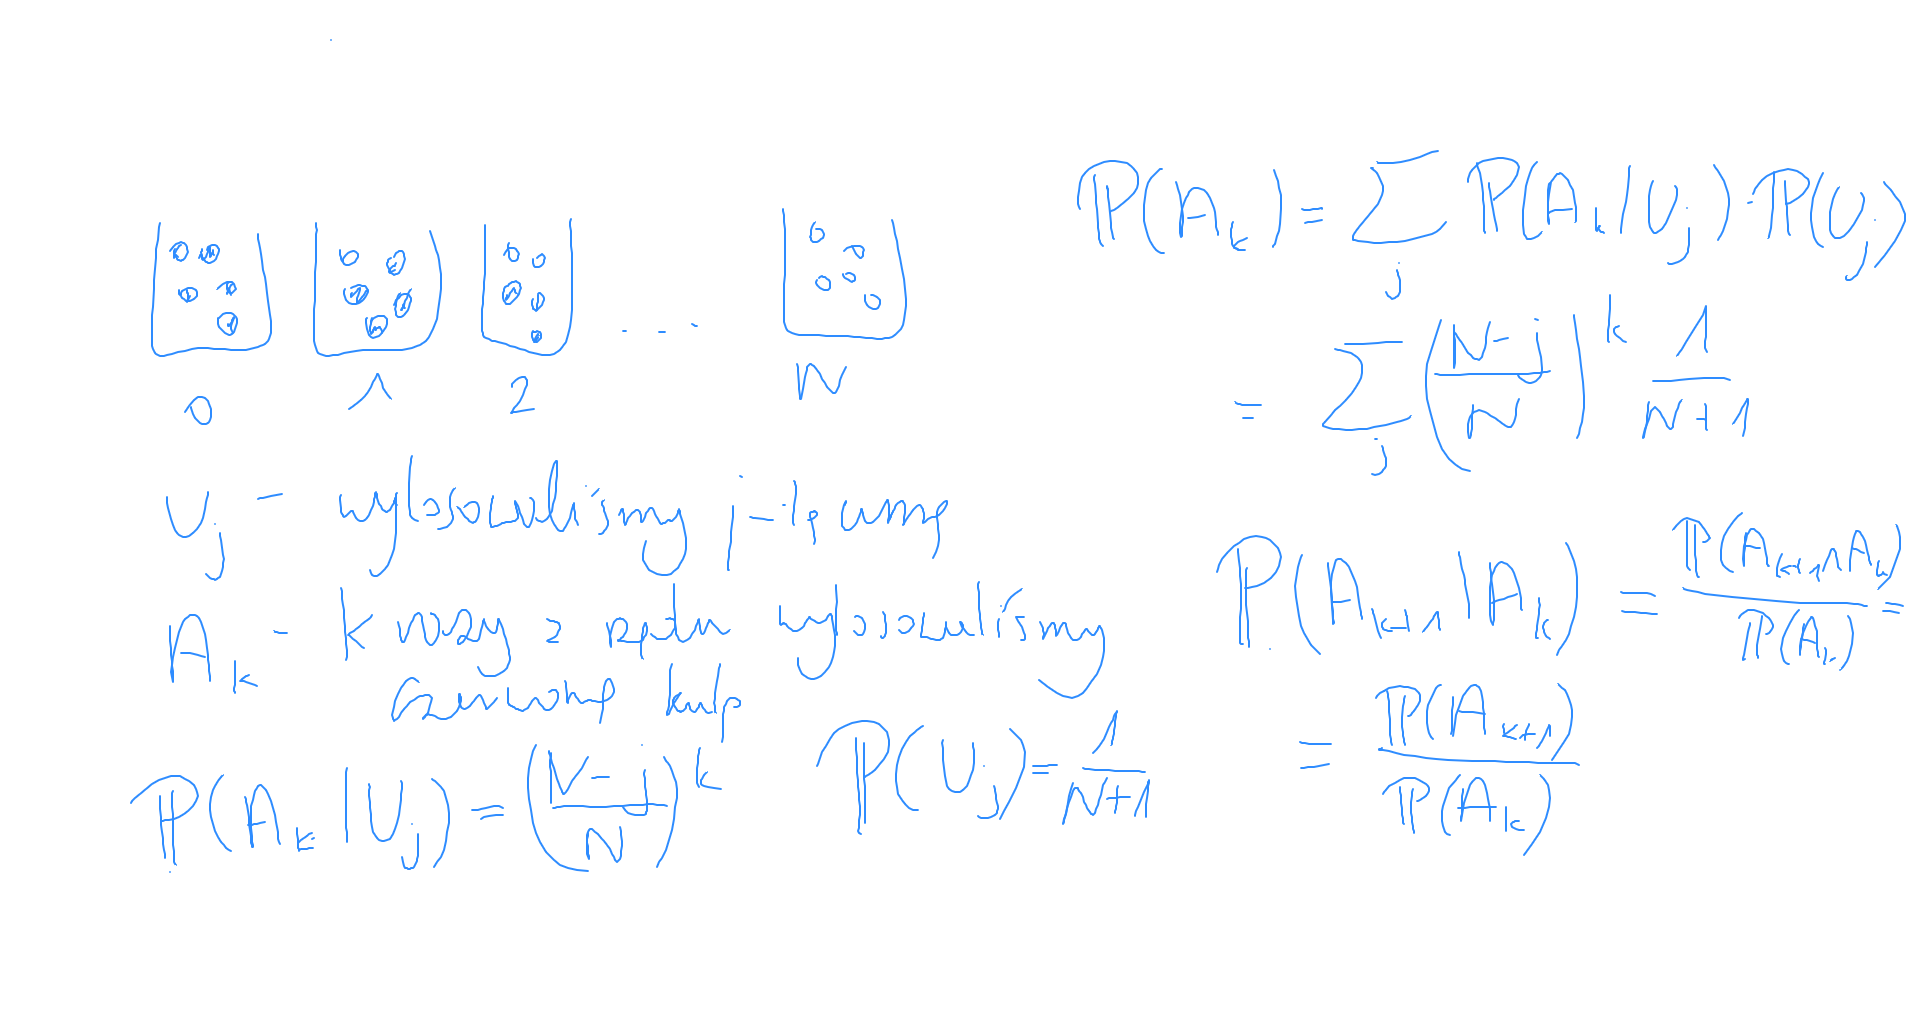 0 1 2 ... N
U_j - wylosowaliśmy j-tą urnę
A_k - k razy z rzędu wylosowaliśmy
czerwoną kulę
P(A_k | U_j) = ((N-j)/N)^k
P(U_j) = 1/(N+1)
P(A_k) = ∑_j P(A_k | U_j) · P(U_j)
= ∑_j ((N-j)/N)^k 1/(N+1)
P(A_{k+1} | A_k) = P(A_{k+1} ∩ A_k)/P(A_k) =
= P(A_{k+1})/P(A_k)